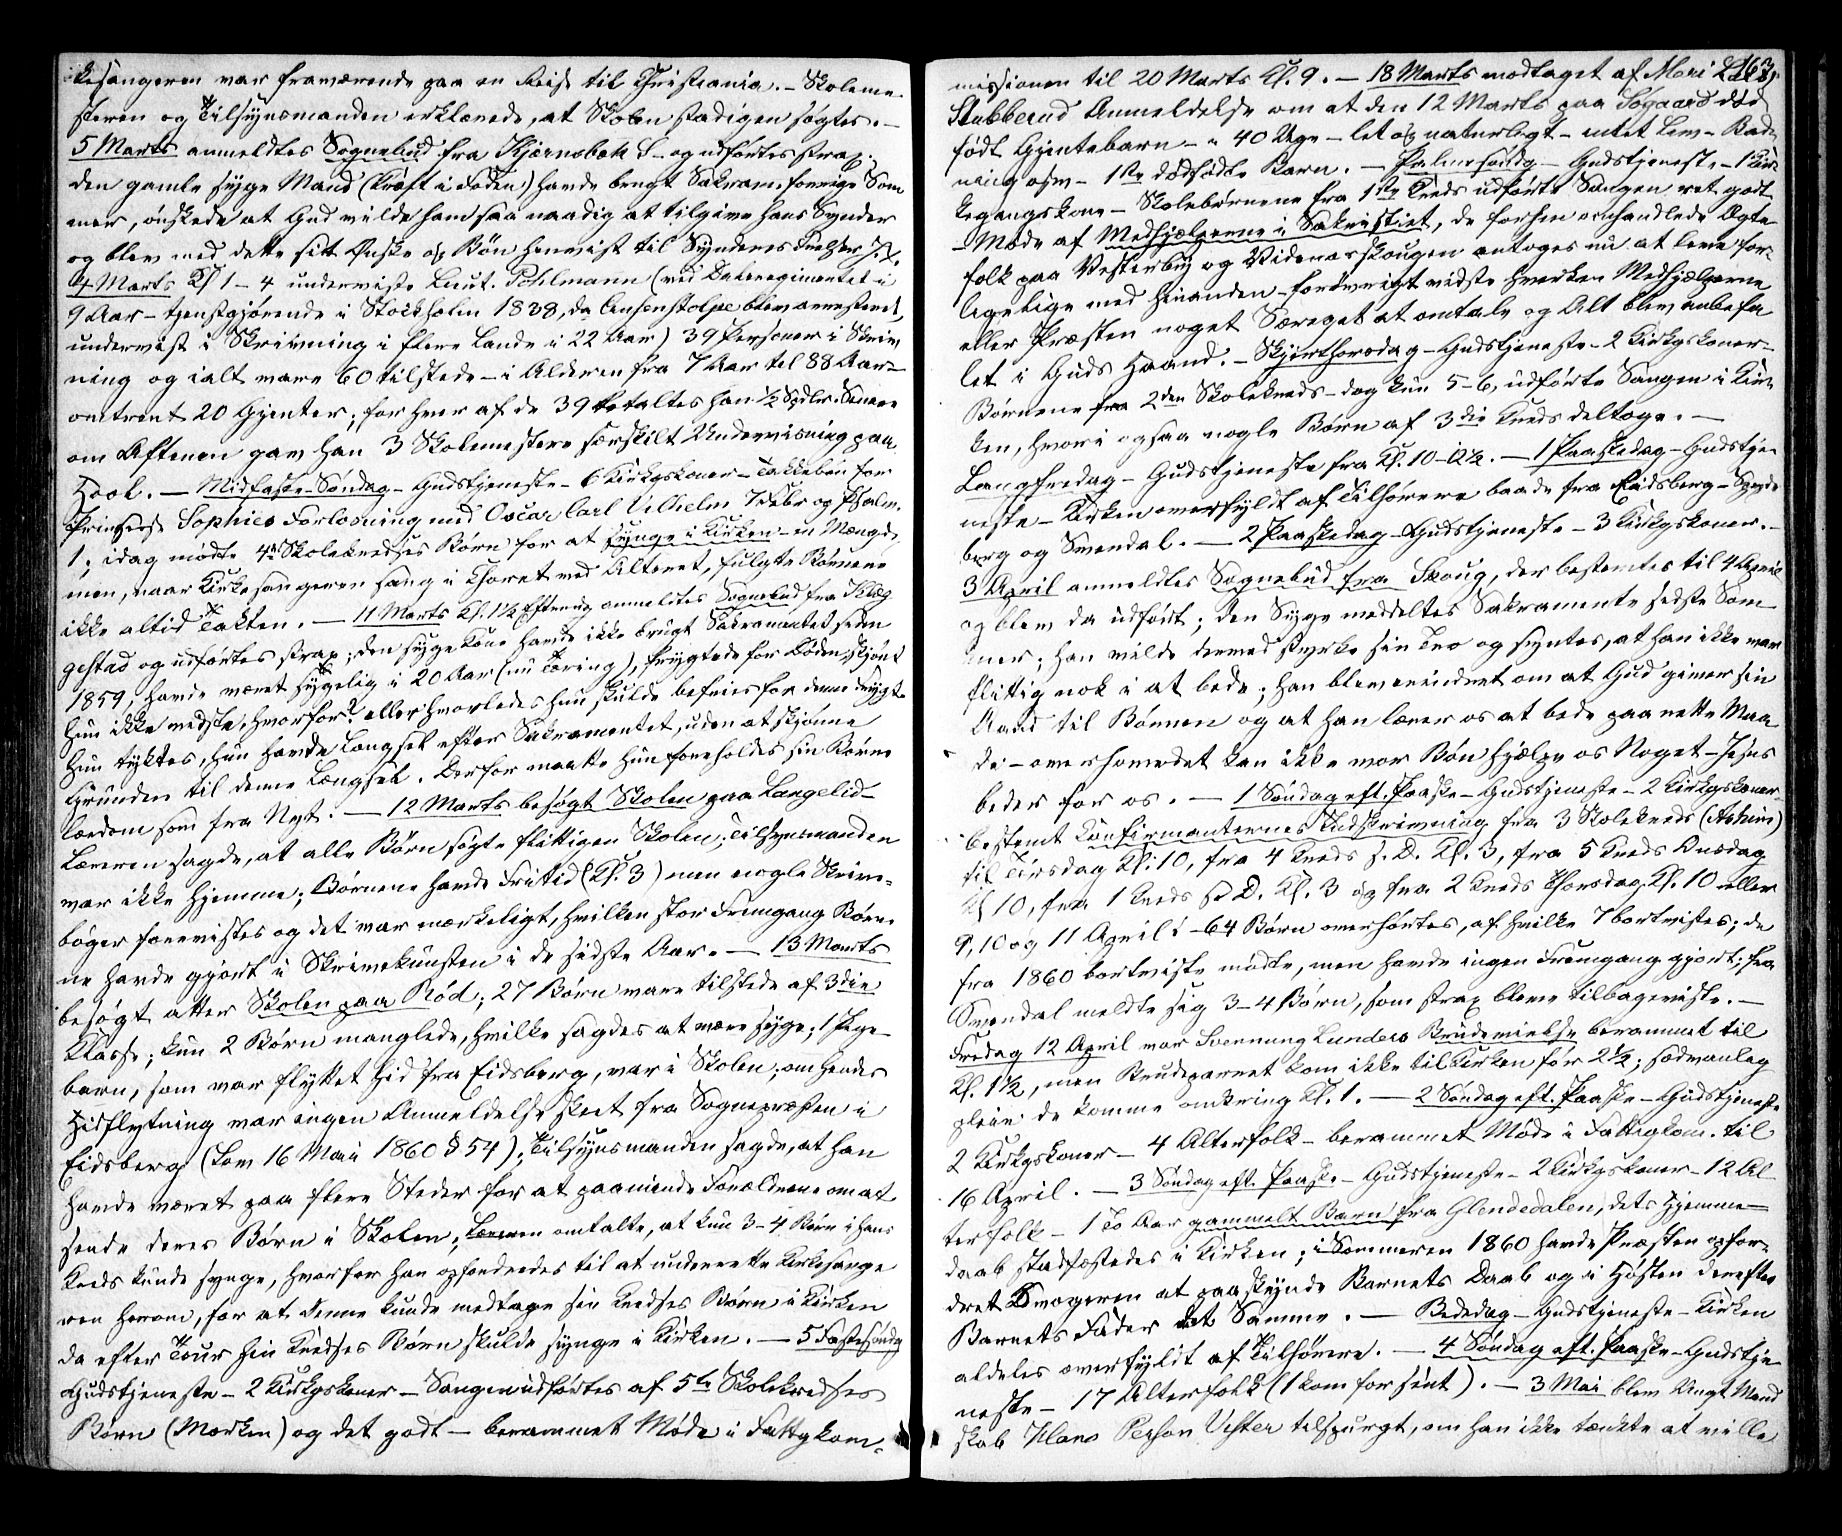 kesangeren var fraværende paa en Reise til Christiania. – Skoleme-
steren og Tilsynsmanden erklærede, at Skolen stadigen søgtes. –
5 Marts anmeldtes Sognebud fra Kjærnsbæk S– og udførtes strax;
den gamle syge Mand (Kræft i Foden) havde brugt Sakram. forrige Som
mer, ønskede at Gud vilde ham saa naadig at tilgive hans Synder
og blev med dette sit Ønske og Bøn henvist til Synderes Frelser J. X.
4 Marts Kl 1–4 underviste Lieut. Pohlmann (ved Daleregimentet i
9 Aar – tjenstgjørende i Stockholm 1838, da Crusenstolpe blev arresteret,
undervist i Skrivning i flere Lande i 22 Aar) 39 Personer i Skriv
ning og ialt vare 60 tilstede – i Alderen fra 7 Aar til 88 Aar –
omtrent 20 Gjenter; for hver af de 39 betaltes han ½ Spdlr. Senere
om Aftenen gav han 3 Skolemestere særskilt Undervisning paa
Hool. – Midfaste-Søndag – Gudstjeneste – 6 Kirkgskoner – Takkebøn for
Prinsesse Sophies Forløsning med Oscar Carl Vilhelm 7 Febr og Psalm.
1; idag mødte 4de Skolekredses Børn for at synge i Kirken – en Mængde,
men, naar Kirkesangeren sang i Choret ved Alteret, fulgte Børnene
ikke altid Takten. – 11 Marts Kl. 1½ Eftmdg anmeldtes Sognebud fra Klæg
gestad og udførtes strax; den syge Kone havde ikke brugt Sakramentet siden
1859, havde været sygelig i 20 Aar (nu Tæring), frygtede for Døden, skjønt
hun ikke vidste, hvorfor? eller hvorledes hun skulde befries for denne Frygt.
hun tyktes, hun havde Længsel efter Sakramentet, uden at skjønne
Grunden til denne Længsel. Derfor maatte hun foreholdes sin Børne
lærdom som fra Nyt. – 12 Marts besøgt Skolen paa Langelid –
Læreren sagde, at alle Børn søgte flittigen Skolen; Tilsynsmanden
var ikke hjemme; Børnene havde Fritid (Kl. 3) men nogle Skrive-
bøger forevistes og det var mærkeligt, hvilken stor Fremgang Børne-
ne havde gjort i Skrivekunsten i de sidste Aar. – 13 Marts
besøgt atter Skolen paa Rød; 27 Børn vare tilstede af 3die
Klasse; kun 2 Børn manglede, hvilke sagdes at være syge; 1 Pige-
barn, som var flyttet hid fra Eidsberg, var i Skolen; om hendes
Hidflytning var ingen Anmeldelse skeet fra Sognepræsten i
Eidsberg (Lov 16 Mai 1860 § 54); Tilsynsmanden sagde, at han
havde været paa flere Steder for at paaminde Forældrene om at
sende deres Børn i Skolen; Læreren omtalte, at kun 3–4 Børn i hans
Kreds kunde synge, hvorfor han opfordredes til at underrette Kirkesange
ren herom, for at denne kunde medtage sin Kredses Børn i Kirken
da efter Tour hin Kredses Børn skulde synge i Kirken. – 5 Fastesøndg
Gudstjeneste – 2 Kirkgskoner – Sangen udførtes af 5te Skolekredses
Børn (Mørken) og det godt – berammet Møde i Fattgkom-
163
missionen til 20 Marts Kl. 9. – 18 Marts modtaget af Mari
Stubberud Anmeldelse om at den 12 Marts paa Søgaard død
født Gjentebarn – 40 Uge – let og naturligt – intet Lev – Bad,
ning osv – 1ste dødfødte Barn. – Palmesøndg – Gudstjeneste – 1 Kir-
kegangskone – Skolebørnene fra 1ste Kreds udførte Sangen ret godt
– Møde af Medhjælperne i Sakristiet, de forhen omhandlede Ægte
folk paa Vesterby og Vidnesskougen antoges nu at leve for-
ligelige med hinanden – forøvrigt vidste hverken Medhjælperne
eller Præsten noget Særeget at omtale og Alt blev anbefa
let i Guds Haand. – Skjærthorsdag – Gudstjeneste – 2 Kirkgskoner –
Børnene fra 2den Skolekreds – dog kun 5–6, udførte Sangen i Kir-
ken, hvori ogsaa nogle Børn af 3die Kreds deltoge. –
Langfredag – Gudstjeneste fra Kl. 10 – 12½. – 1 Paaskedag – Gudstje-
neste – Kirken overfyldt af Tilhørere baade fra Eidsberg – Spyde
berg og Smendal. – 2 Paaskedag – Gudstjeneste – 3 Kirkgskoner. –
3 April anmeldtes Sognebud fra Skoug, der bestemtes til 4 April
og blev da udført; den Syge meddeltes Sakramente sidste Som-
mer; han vilde derved styrke sin Tro og syntes, at han ikke var
flittig nok i at bede; han blev erindret om at Gud giver sin
Aand til Bønnen og at han lærer os at bede paa rette Maa-
de – overhovedet kan ikke vor Bøn hjælpe os Noget – Jesus
beder for os. – 1 Søndag eft. Paaske – Gudstjeneste – 2 Kirkgskoner –
bestemt Konfirmanternes Indskrivning fra 3 Skolekreds (Askim)
til Tirsdag Kl. 10, fra 4 Kreds s. D. Kl. 3, fra 5 Kreds Onsdag
Kl 10, fra 1 Kreds s. D. Kl. 3 og fra 2 Kreds Thorsdag Kl. 10 eller
9, 10 og 11 April – 64 Børn overhørtes, af hvilke 7 bortvistes; de
fra 1860 bortviste mødte, men havde ingen Fremgang gjort; fra
Smendal meldte sig 3–4 Børn, som strax bleve tilbageviste. –
Fredag 12 April var Svenning Lunders Brudevielse berammet til
Kl. 1½, men Brudeparret kom ikke til Kirken før 2½; sædvanlig
pleie de komme omkring Kl. 1. – 2 Søndag eft. Paaske – Gudstjeneste
2 Kirkgskoner – 4 Alterfolk – berammet Møde i Fattigkom. til
16 April. – 3 Søndag eft. Paaske – Gudstjeneste – 2 Kirkgskoner – 12 Al
terfolk – 1 To Aar gammelt Barn fra Glendedalen, dets Hjemme-
daab stadfæstedes i Kirken; i Sommeren 1860 havde Præsten opfor-
dret Svogeren at paaskynde Barnets Daab og i Høsten derefter
Barnets Fader det Samme. – Bededag – Gudstjeneste – Kirken
aldeles overfyldt af Tilhørere. – 4 Søndag eft. Paaske – Gudstje-
neste – 17 Alterfolk (1 kom for sent). – 3 Mai blev Ungt Mand
skab Hans Person Vester tilspurgt, om han ikke tænkte at ville